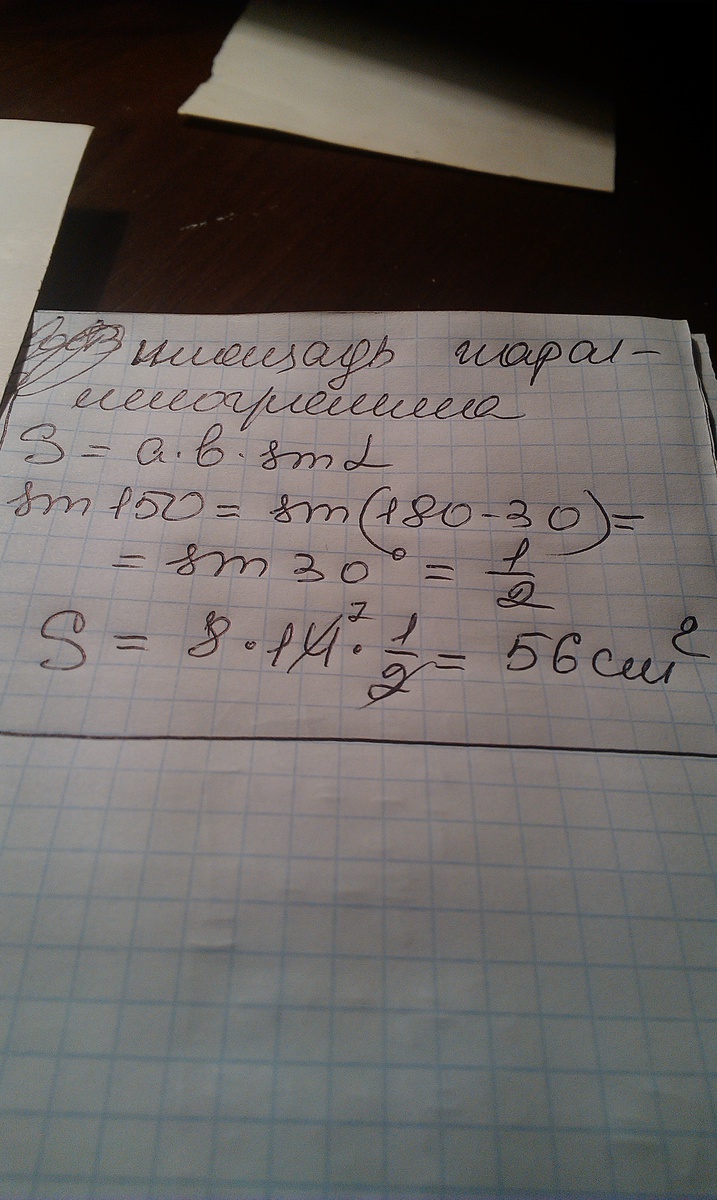 площадь парал-
лелограмма
S = a·b·sin α
sin 150 = sin(180-30)=
= sin 30° = 1/2
S = 8·14·1/2 = 56 см²